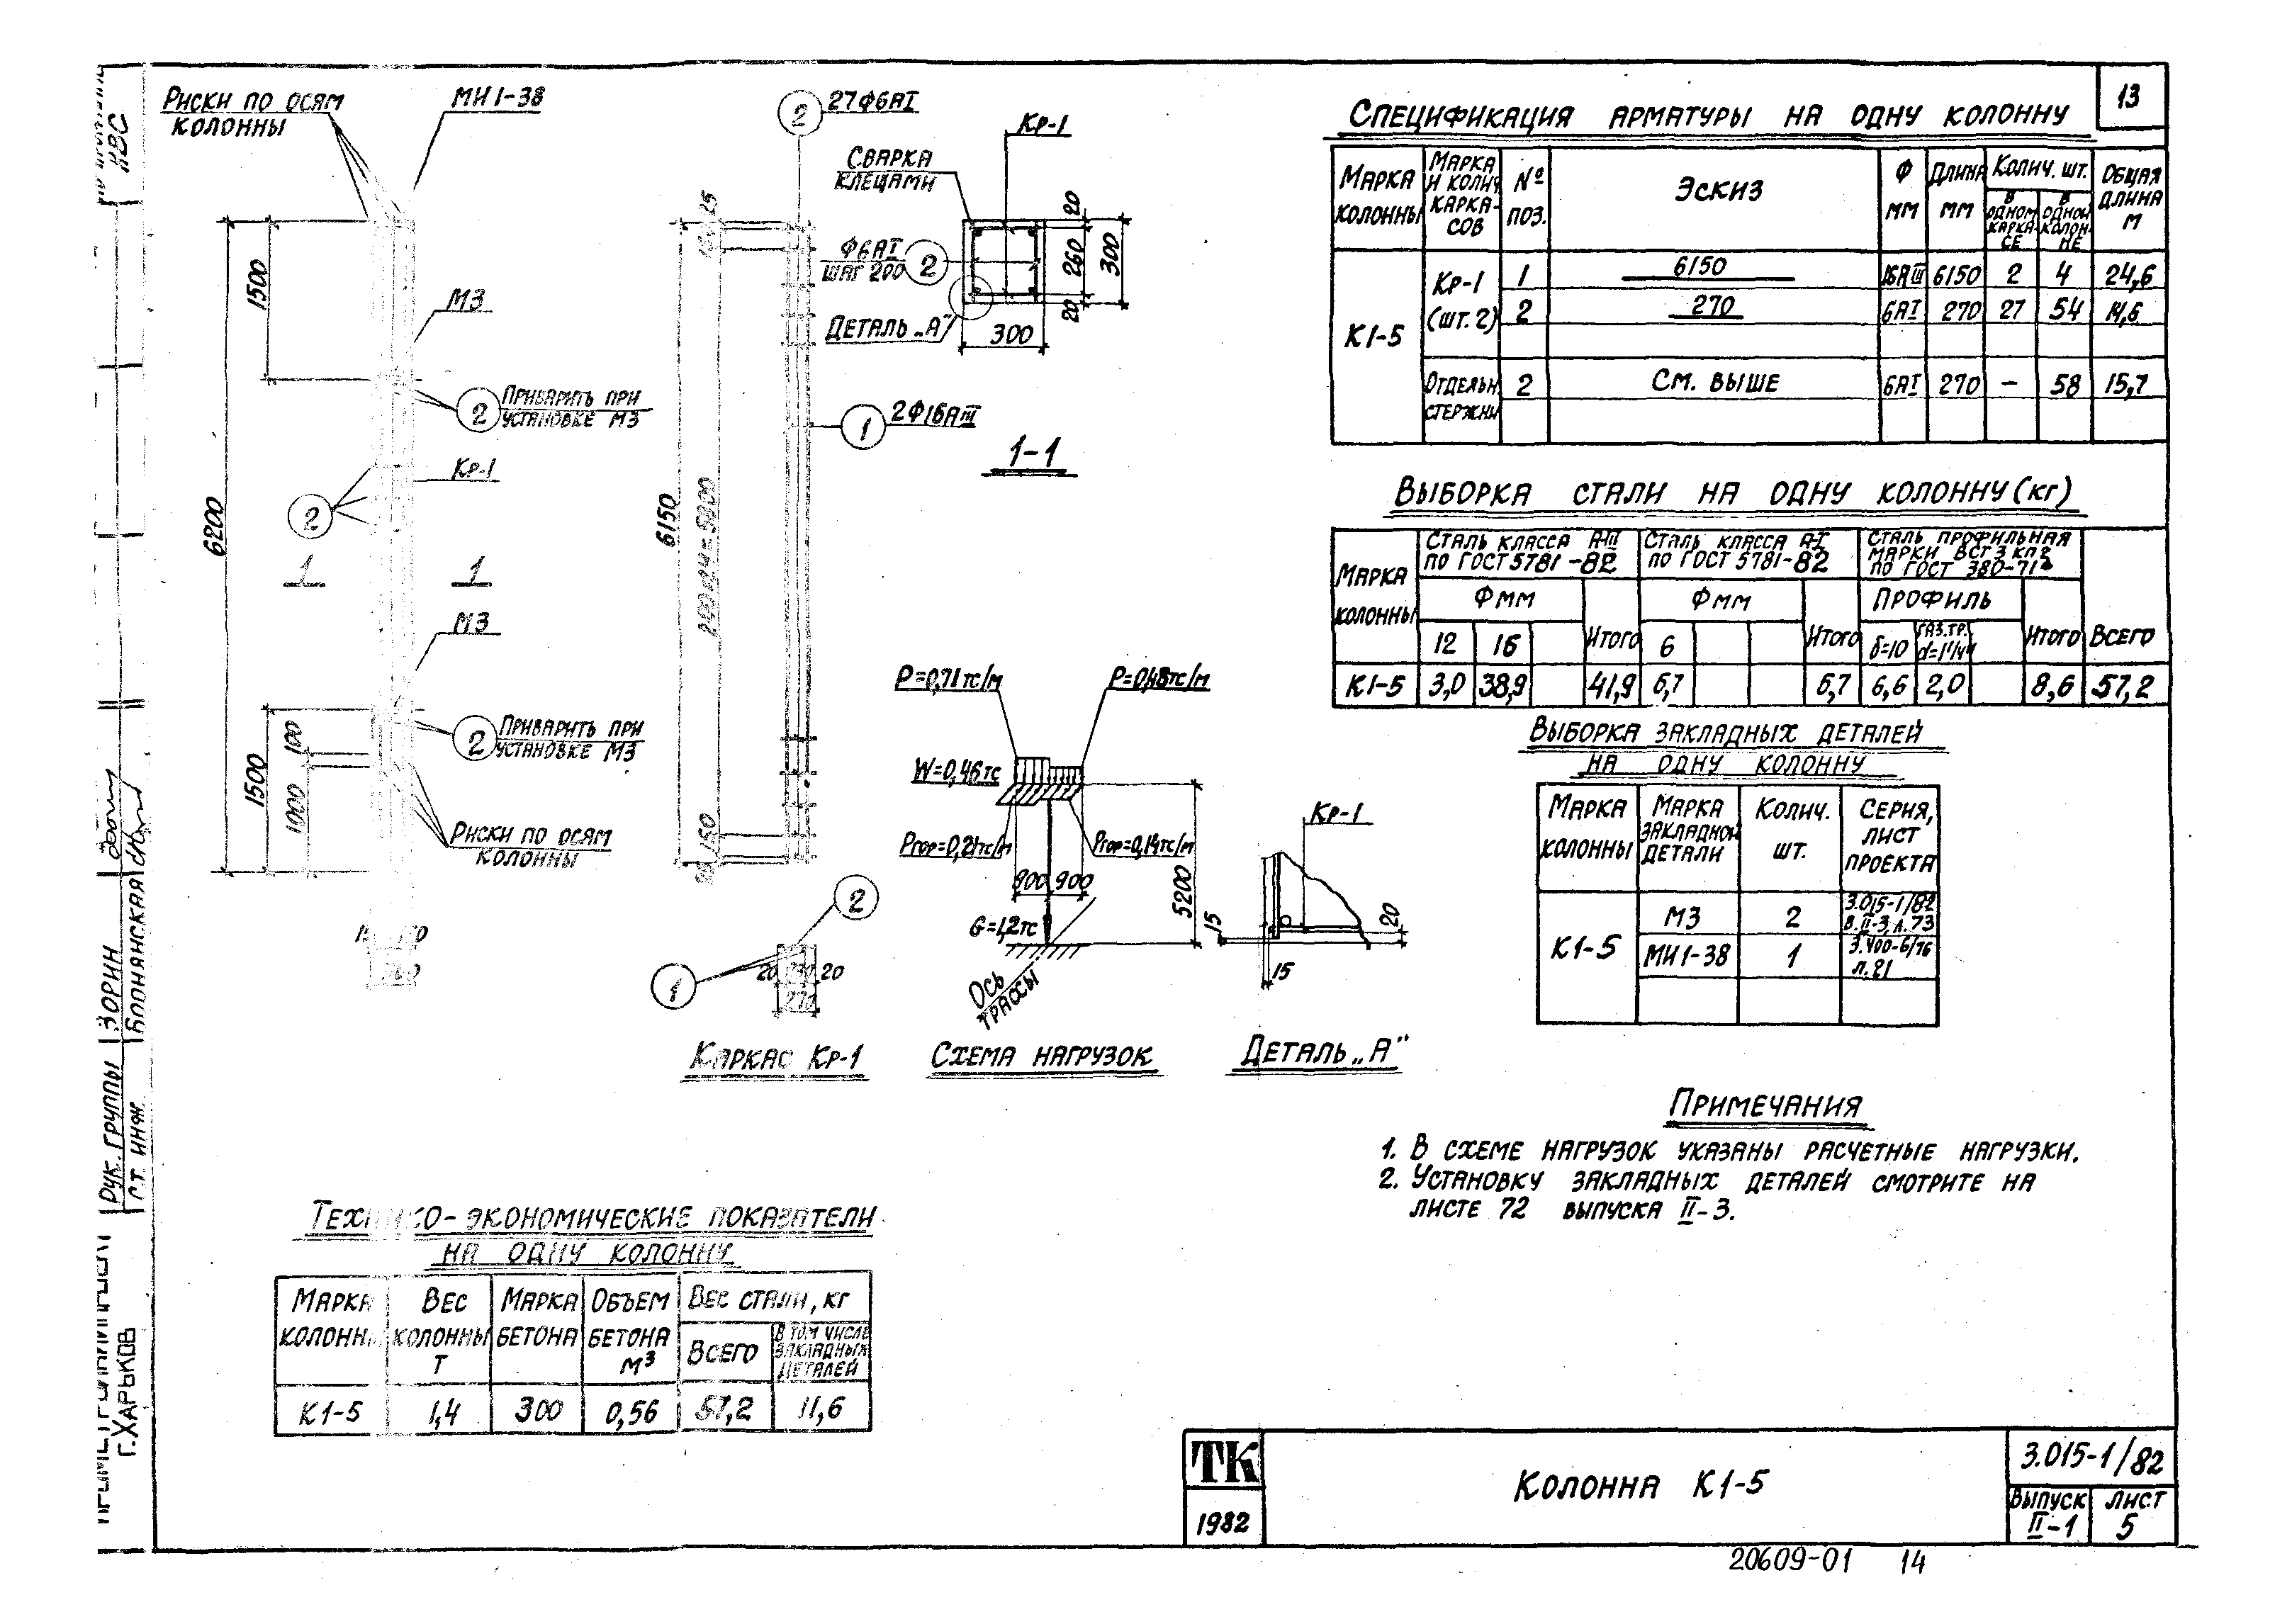 13
Риски по осям
колонны
МИ1-38
1500
6200
М3
2
Приварить при
установке М3
Кр-1
2
1 1
М3
2
Приварить при
установке М3
1500
100
1000
Риски по осям
колонны
2
27Ф6АI
25
6150
200×24=5200
150
1
2Ф16АIII
2
1
20 20
270
Каркас Кр-1
Кр-1
Сварка
клещами
Ф6АI
шаг 200
2
Деталь „А"
20
260
300
20
300
1-1
P=0,71тс/м
P=0,48тс/м
W=0,46тс
Pгор=0,21тс/м
Pгор=0,14тс/м
900 900
5200
G=1,2тс
Ось
трассы
Схема нагрузок
Кр-1
15
20
15
Деталь „А"
Спецификация арматуры на одну колонну
Марка колонны
Марка и колич. каркасов
№ поз.
Эскиз
Ф мм
Длина мм
Колич. шт.
в одном каркасе
в одной колонне
Общая длина м
К1-5
Кр-1 (шт.2)
1 6150 16АIII 6150 2 4 24,6
2 270 6АI 270 27 54 14,6
Отдельн. стержни
2 См. выше 6АI 270 – 58 15,7
Выборка стали на одну колонну (кг)
Марка колонны
Сталь класса А-III
по ГОСТ 5781-82
Сталь класса А-I
по ГОСТ 5781-82
Сталь профильная
марки ВСт3кп2
по ГОСТ 380-71
Ф мм
Ф мм
Профиль
12 16 Итого 6 Итого δ=10 Газ.тр. d=1¼" Итого Всего
К1-5 3,0 38,9 41,9 6,7 6,7 6,6 2,0 8,6 57,2
Выборка закладных деталей
на одну колонну
Марка колонны
Марка закладной детали
Колич. шт.
Серия, лист проекта
К1-5
М3 2 3.015-1/82 в.II-3, л.73
МИ1-38 1 3.400-6/76 л.21
Примечания
1. В схеме нагрузок указаны расчетные нагрузки.
2. Установку закладных деталей смотрите на
листе 72 выпуска II-3.
Технико-экономические показатели
на одну колонну
Марка колонны
Вес колонны т
Марка бетона
Объем бетона м³
Вес стали, кг
Всего
В том числе закладных деталей
К1-5 1,4 300 0,56 57,2 11,6
ТК
1982
Колонна К1-5
3.015-1/82
Выпуск
II-1
Лист
5
20609-01 14
Рук. группы Зорин
Ст. инж.
г. Харьков